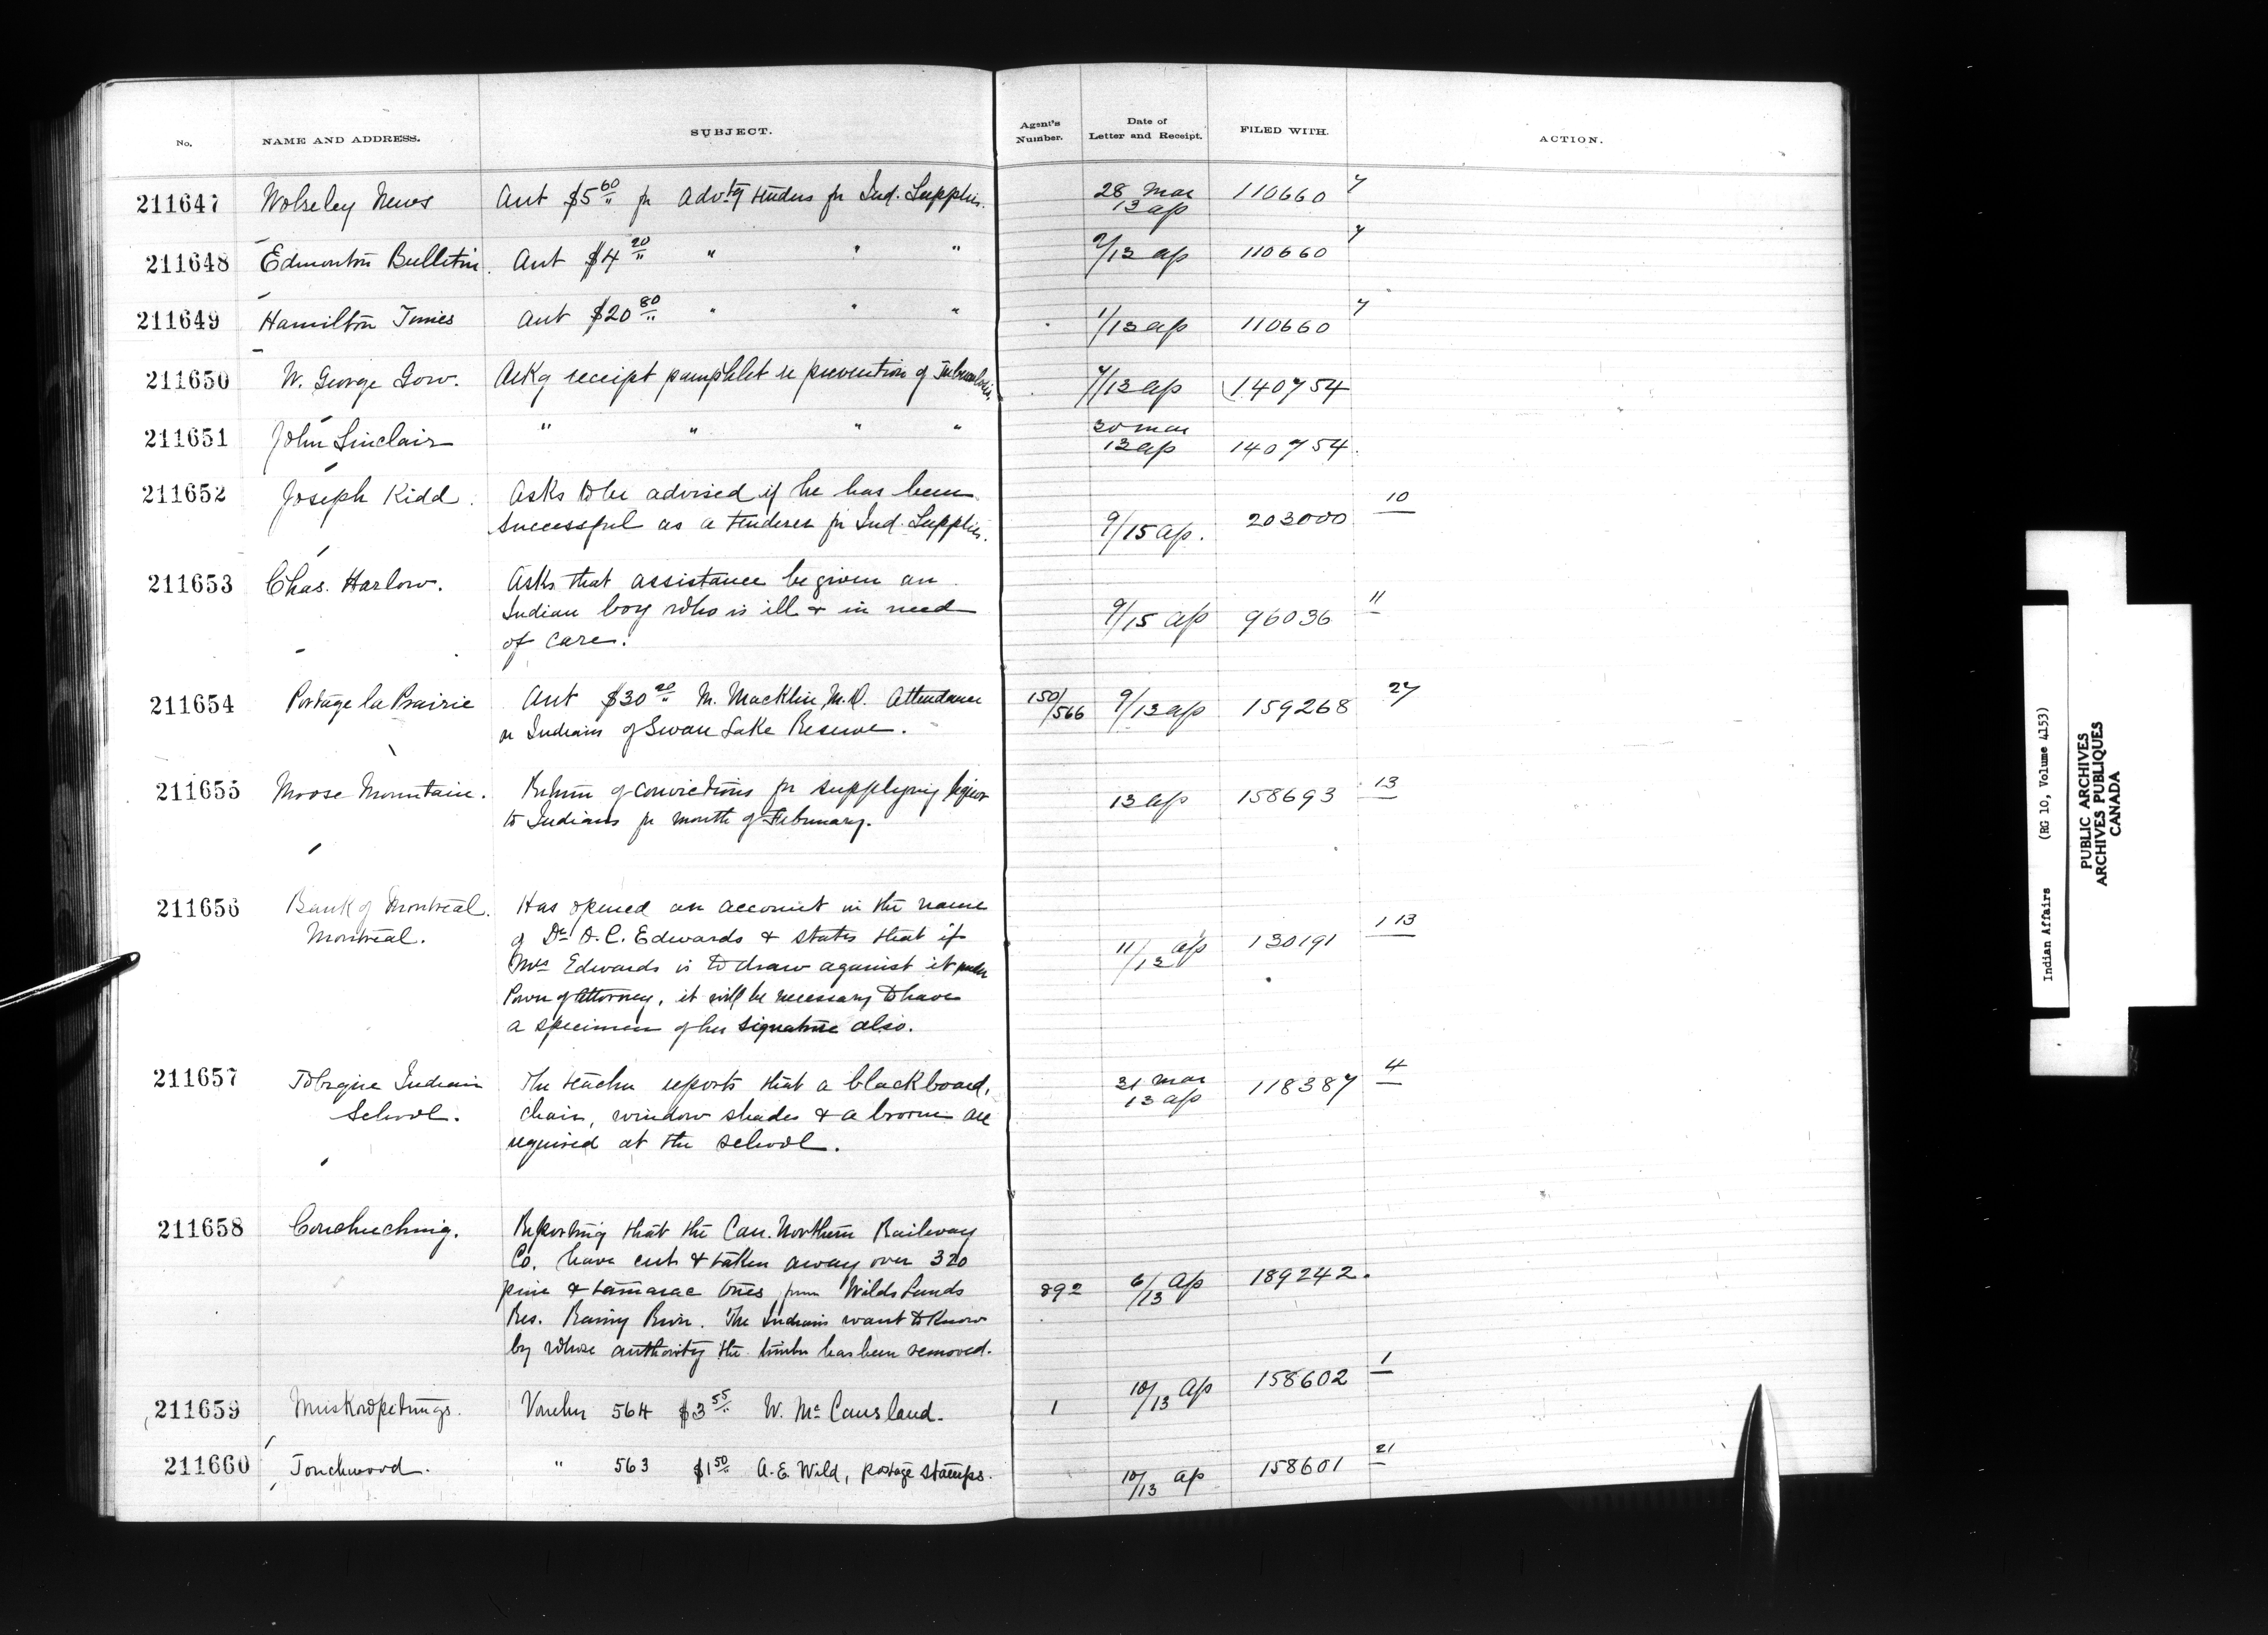 No. NAME AND ADDRESS. SUBJECT. Agent's Number. Date of Letter and Receipt. FILED WITH. ACTION.
211647 Wolseley News Acct $5 60/" fr Advtg tenders fr Ind. Supplies. 28 Mar 110660 7
13 ap
211648 Edmonton Bulletin. Acct $4 20/" " " " 9/13 ap 110660 7
211649 Hamilton Times Acct $20 80/" " " " 1/13 ap 110660 7
211650 W. George Gow. Ackg receipt pamphlet re prevention of Tuberculosis. 7/13 ap 140754
211651 John Sinclair " " " " 30 mar
13 ap 140754.
211652 Joseph Kidd. Asks to be advised if he has been
successful as a tenderer fr Ind. Supplies. 9/15 ap. 203000 10
211653 Chas. Harlow. Asks that assistance be given an
Indian boy who is ill & in need 9/15 ap 96036 11
of care.
211654 Portage la Prairie Acct $30 20/" M. Macklin, M.D. Attendance 150/566 9/13 ap 159268 27
on Indians of Swan Lake Reserve.
211655 Moose Mountain. Return of convictions fr supplying liquor 13 ap 158693 13
to Indians fr month of February.
211656 Bank of Montreal. Has opened an account in the name
Montreal. of Dr A. C. Edwards & states that if 11/13 ap 130191 1 13
Mrs Edwards is to draw against it under
Power of Attorney, it will be necessary to have
a specimen of her signature also.
211657 Tobique Indian The teacher reports that a blackboard, 31 mar 118387 4
School. chair, window shades & a broom are 13 ap
required at the school.
211658 Couchuching. Reporting that the Can. Northern Railway
Co. have cut & taken away over 320
pine & tamarac trees from Wild Lands 892 6/13 ap 189242.
Res. Rainy River. The Indians want to know
by whose authority the timber has been removed.
211659 Muskowpetungs. Voucher 564 $3 55/" W. McCausland. 1 10/13 ap 158602 1
211660 Touchwood. " 563 $1 50/" A. E. Wild, postage stamps. 10/13 ap 158601 21
Indian Affairs (RG 10, Volume 4153)
PUBLIC ARCHIVES
ARCHIVES PUBLIQUES
CANADA